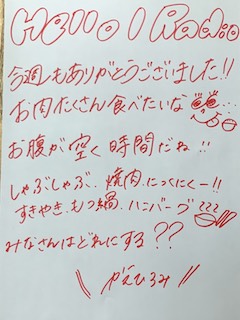 Hello! Radio
今週もありがとうございました!!
お肉たくさん食べたいな
お腹が空く時間だね!!
しゃぶしゃぶ、焼肉、にっくにくー!!
すきやき、もつ鍋、ハンバーグ
みなさんはどれにする??
\\ かえひろみ //